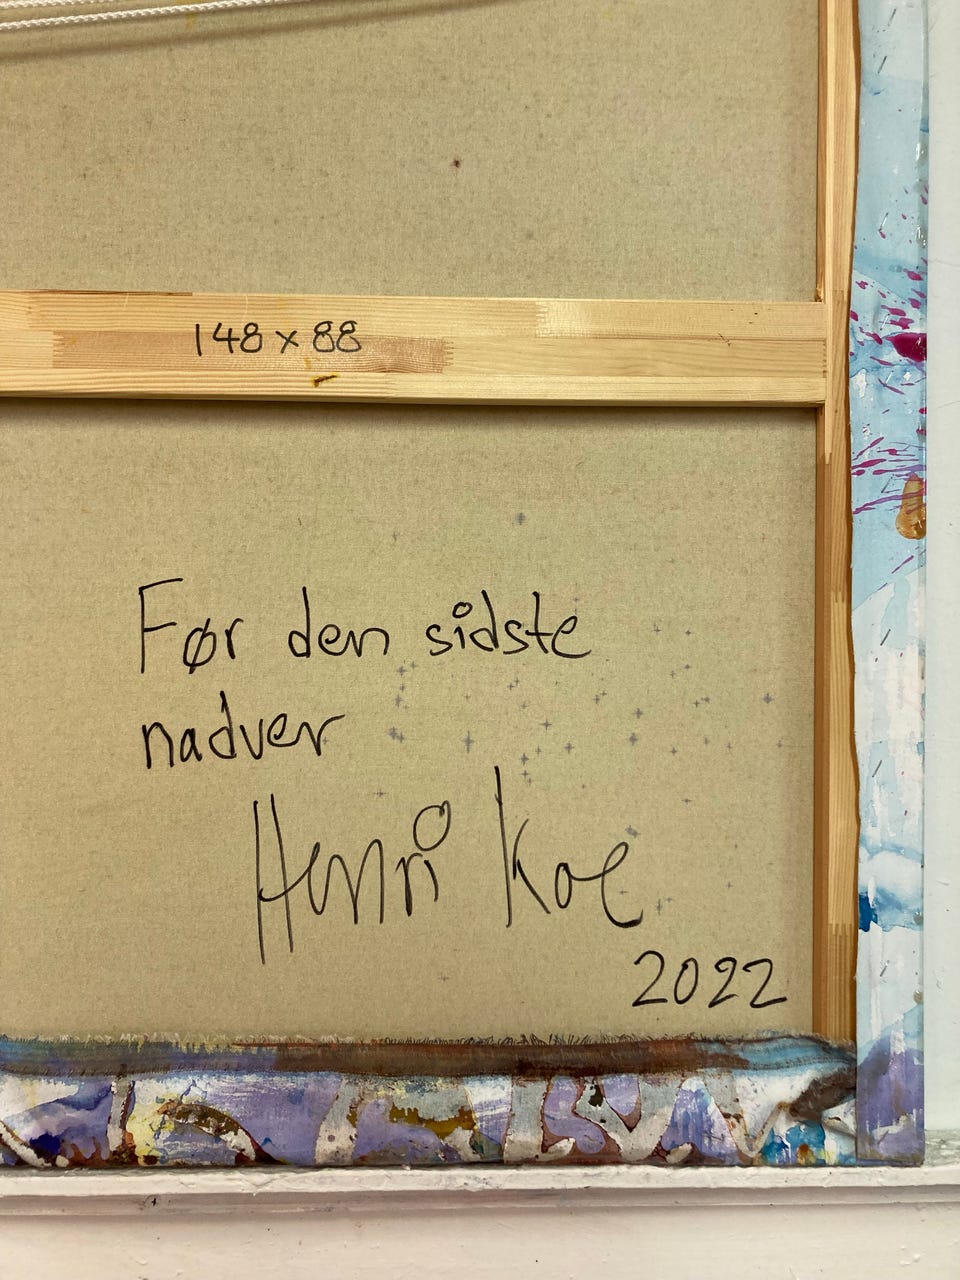 148 x 88
Før den sidste
nadver
Henri Koe
2022